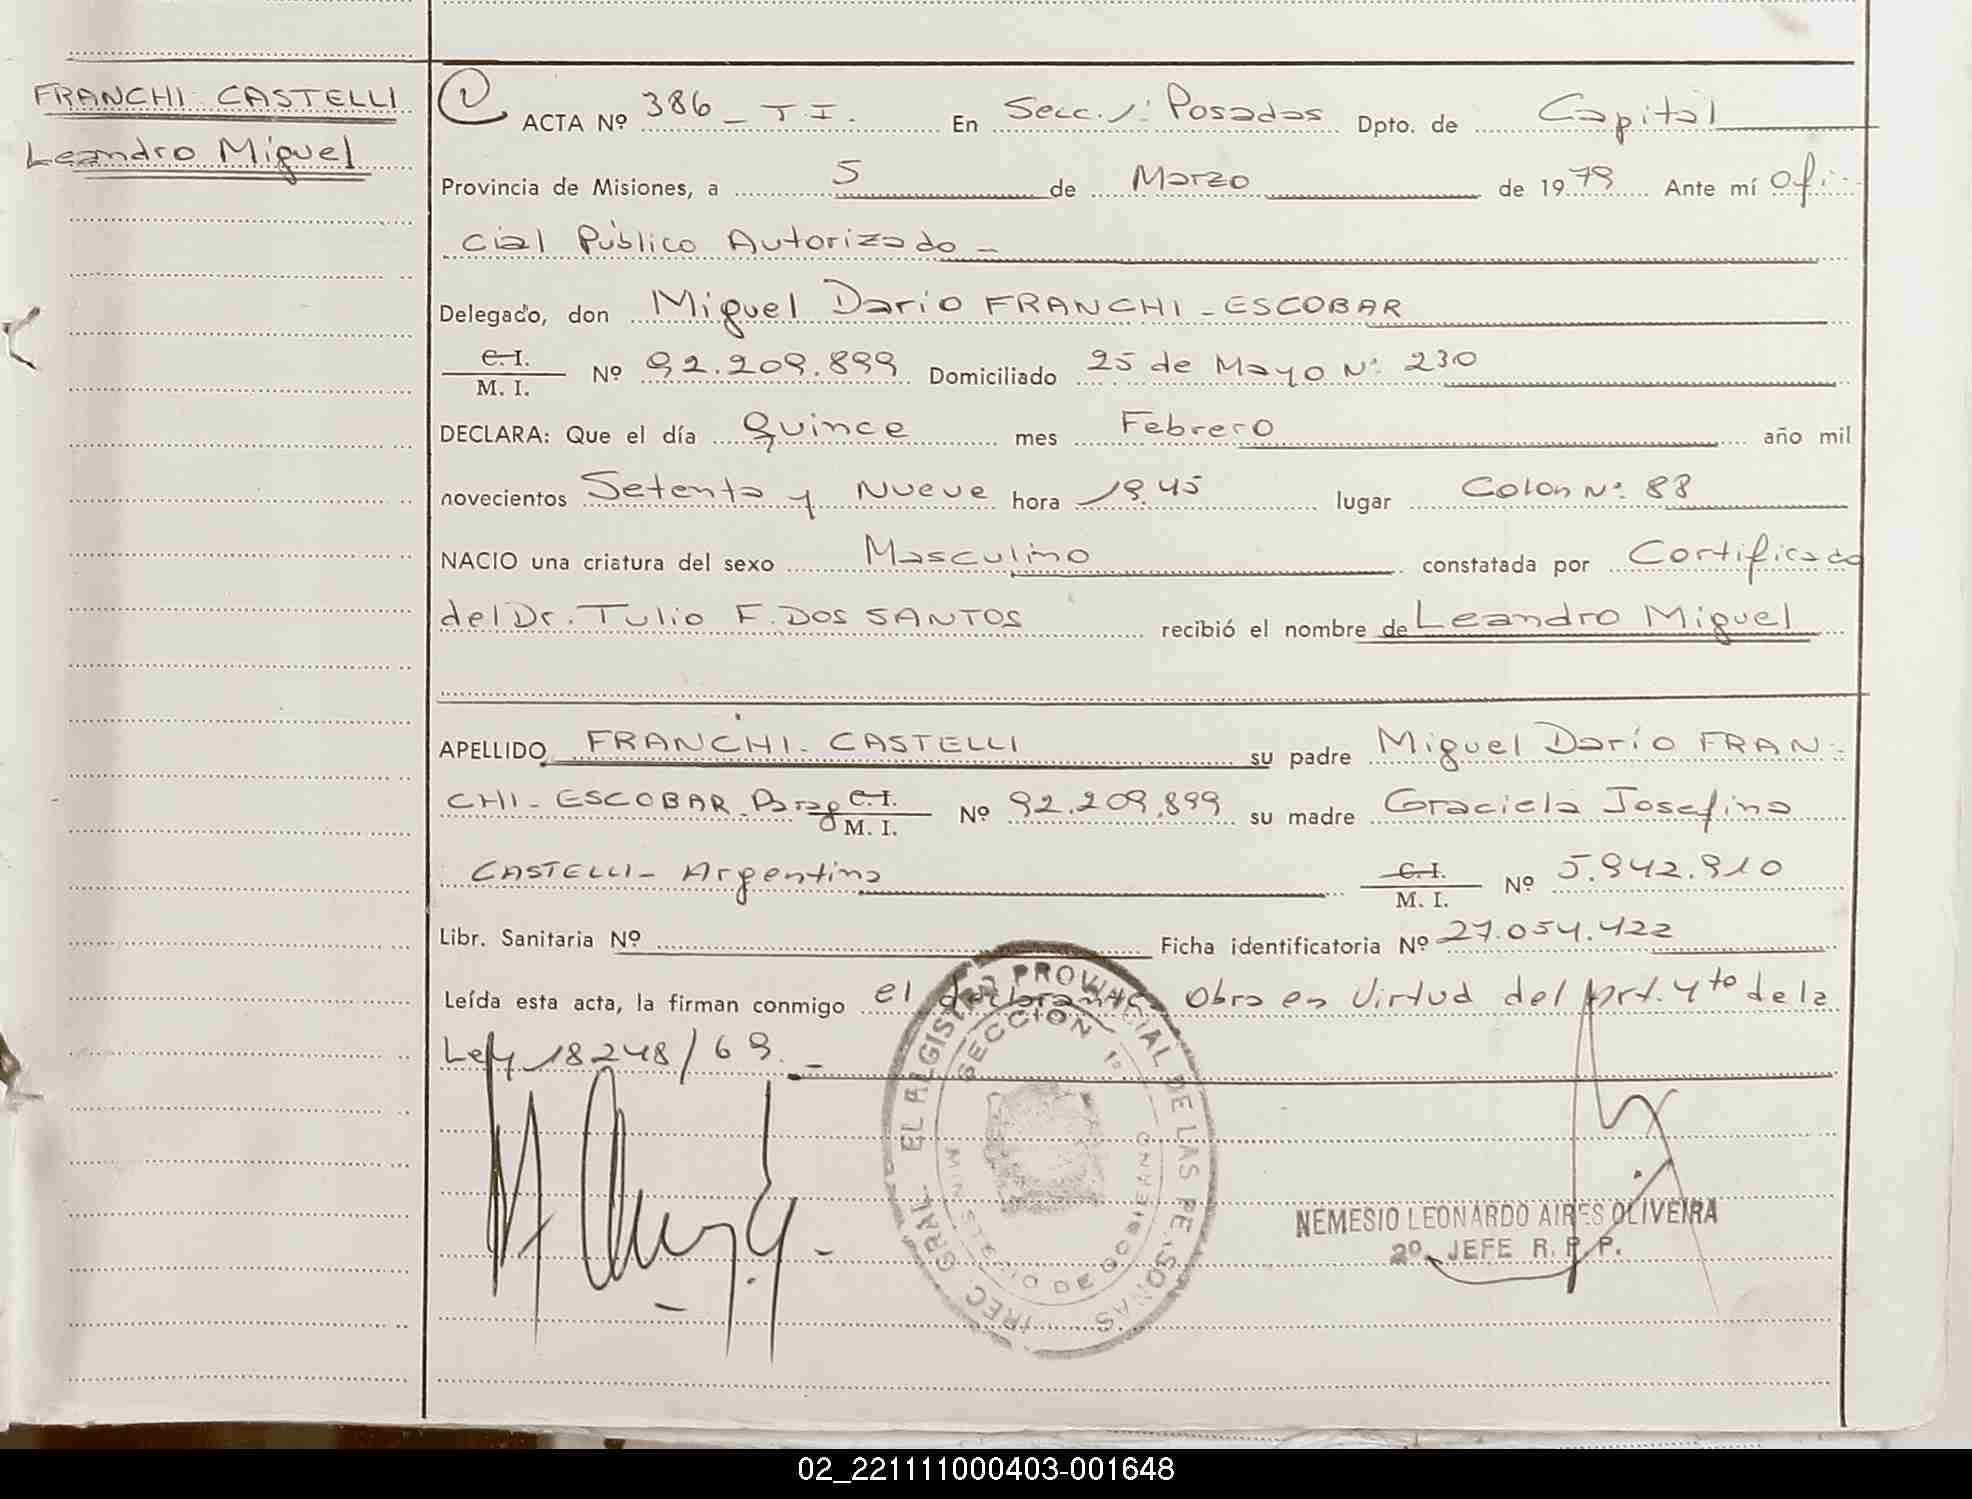 FRANCHI - CASTELLI
Leandro Miguel
ACTA Nº 386 _ T I. En Secc. 1: Posadas Dpto. de Capital
Provincia de Misiones, a 5 de Marzo de 1979 Ante mí Ofi-
cial Público Autorizado -
Delegado, don Miguel Dario FRANCHI - ESCOBAR
C. I.
M. I. Nº 92.209.899 Domiciliado 25 de Mayo Nº 230
DECLARA: Que el día Quince mes Febrero año mil
novecientos Setenta y Nueve hora 19.45 lugar Colon Nº 88
NACIO una criatura del sexo Masculino constatada por Certificado
del Dr. Tulio F. DOS SANTOS recibió el nombre de Leandro Miguel
APELLIDO FRANCHI - CASTELLI su padre Miguel Darío FRAN-
CHI - ESCOBAR - Parag C. I. M. I. Nº 92.209.899 su madre Graciela Josefina
CASTELLI - Argentina C. I. M. I. Nº 5.942.910
Libr. Sanitaria Nº Ficha identificatoria Nº 27.054.422
Leída esta acta, la firman conmigo el declarante Obra en Virtud del Art. 4to de la
Ley 18248/69. -
DIREC. GRAL. EL REGISTRO PROVINCIAL DE LAS PERSONAS
SECCION 1º
MINISTERIO DE GOBIERNO
NEMESIO LEONARDO AIRES OLIVEIRA
2º JEFE R. P. P.
02_221111000403-001648